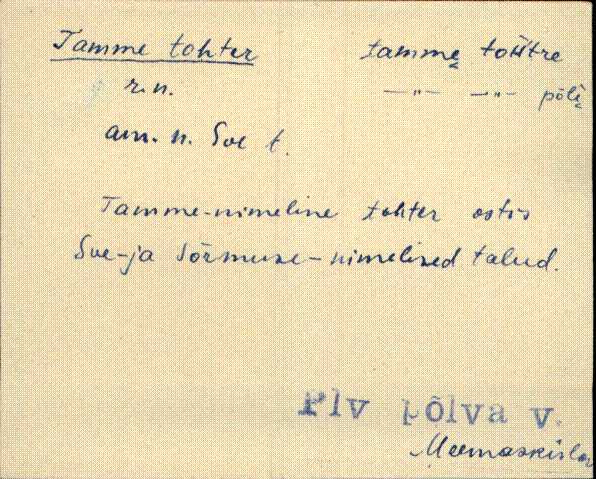 Tamme tohter tamme tohtre
r.n. —"— —"— põlí
am. n. Soe t.
Tamme-nimeline tohter ostis
Soe-ja Sõrmuse-nimelised talud.
Plv põlva v.